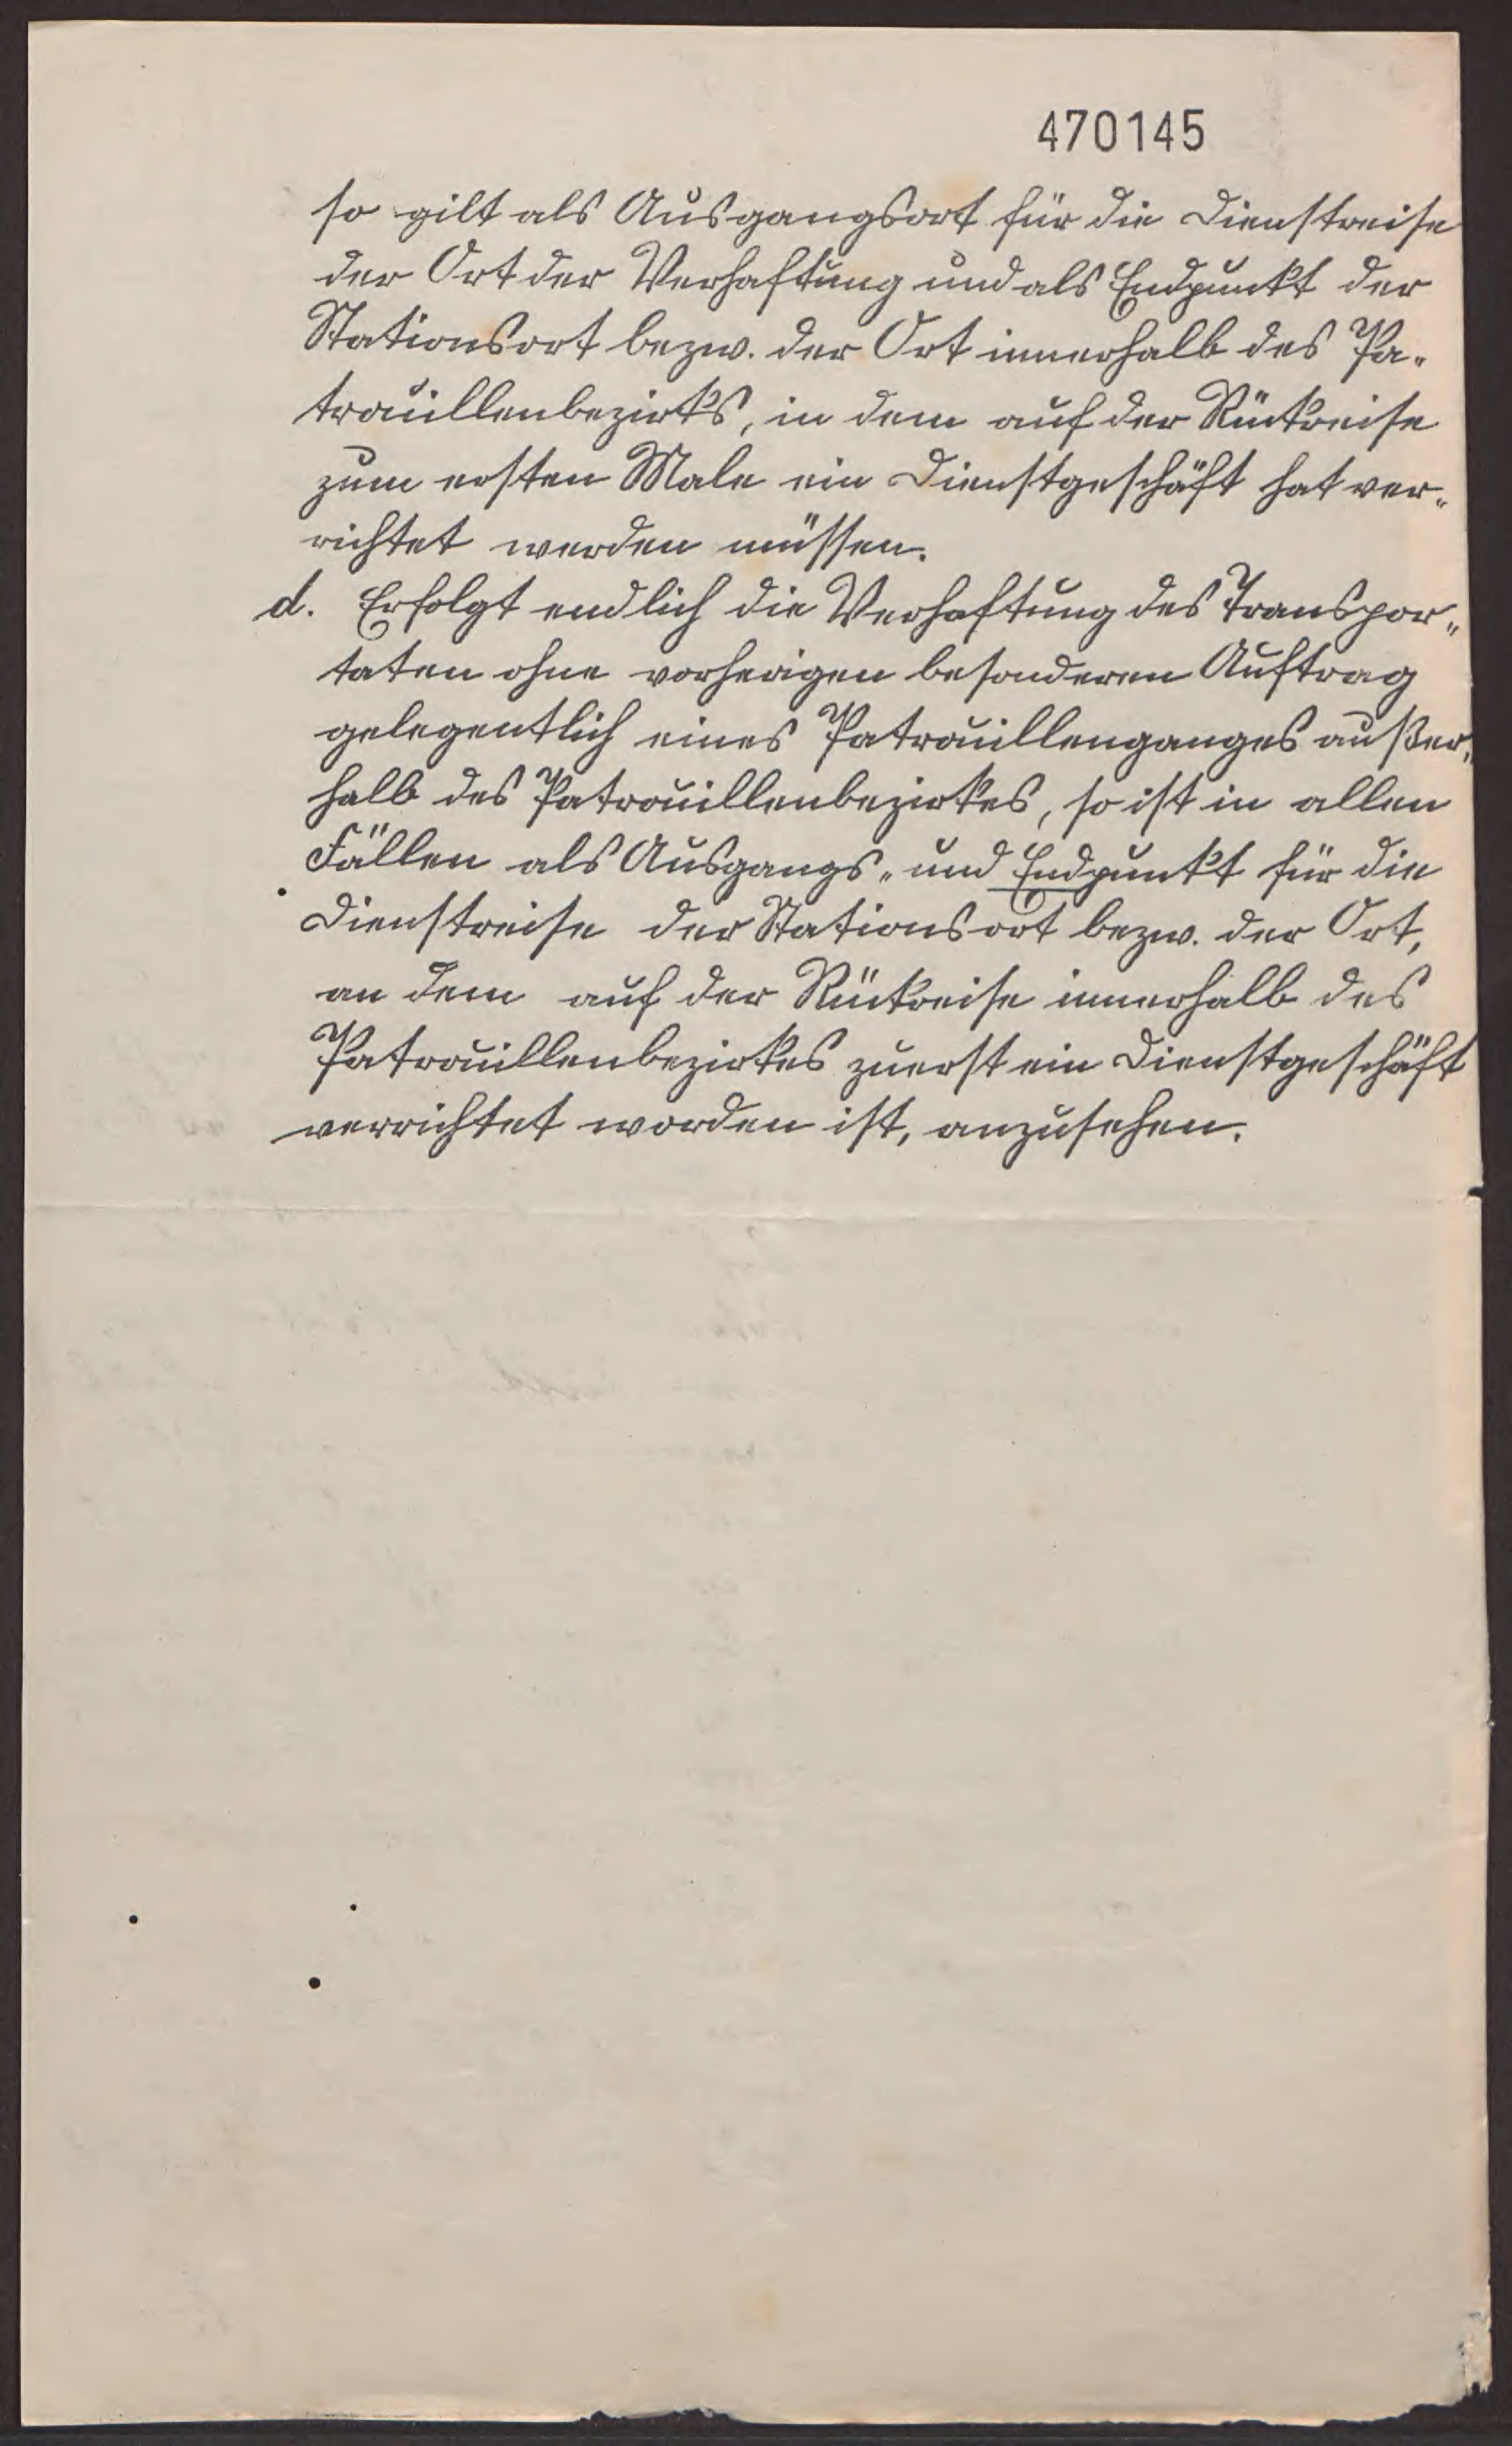 470145
so gilt als Ausgangsort für die Dienstreise
der Ort der Verhaftung und als Endpunkt der
Stationsort bezw. der Ort innerhalb des Pa-
trouillenbezirks, in dem auf der Rückreise
zum ersten Male ein Dienstgeschäft hat ver-
richtet werden müssen.
d. Erfolgt endlich die Verhaftung des Transpor-
taten ohne vorherigen besonderen Auftrag
gelegentlich eines Patrouillenganges außer-
halb des Patrouillenbezirkes, so ist in allen
Fällen als Ausgangs- und Endpunkt für die
Dienstreise der Stationsort bezw. der Ort,
an dem auf der Rückreise innerhalb des
Patrouillenbezirkes zuerst ein Dienstgeschäft
verrichtet worden ist, anzusehen.